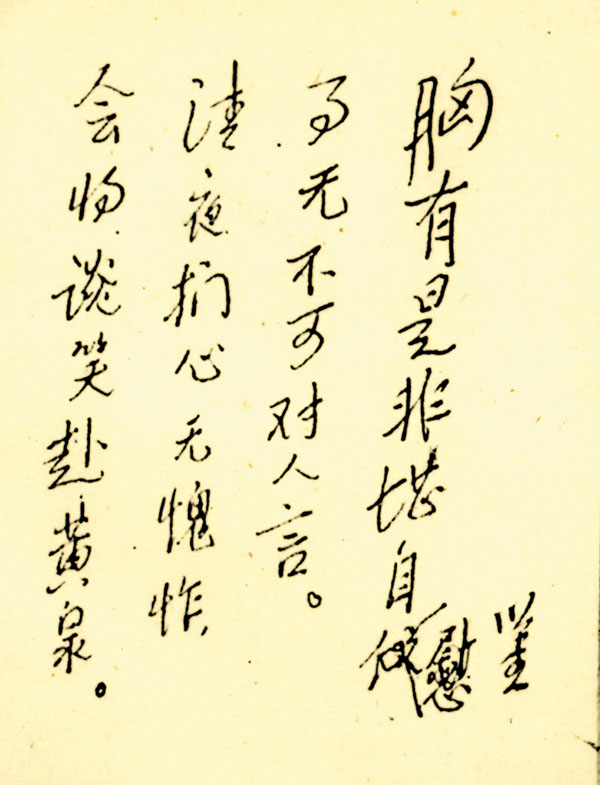 胸有是非堪自慰鉴
事无不可对人言。
清夜扪心无愧怍,
会将谈笑赴黄泉。